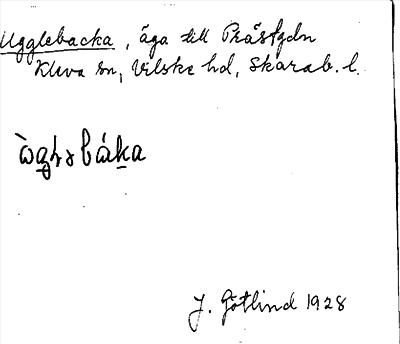 Ugglebacka, äga till Prästgdn
Kleva sn, Vilske hd, Skarab. l.
J. Götlind 1928